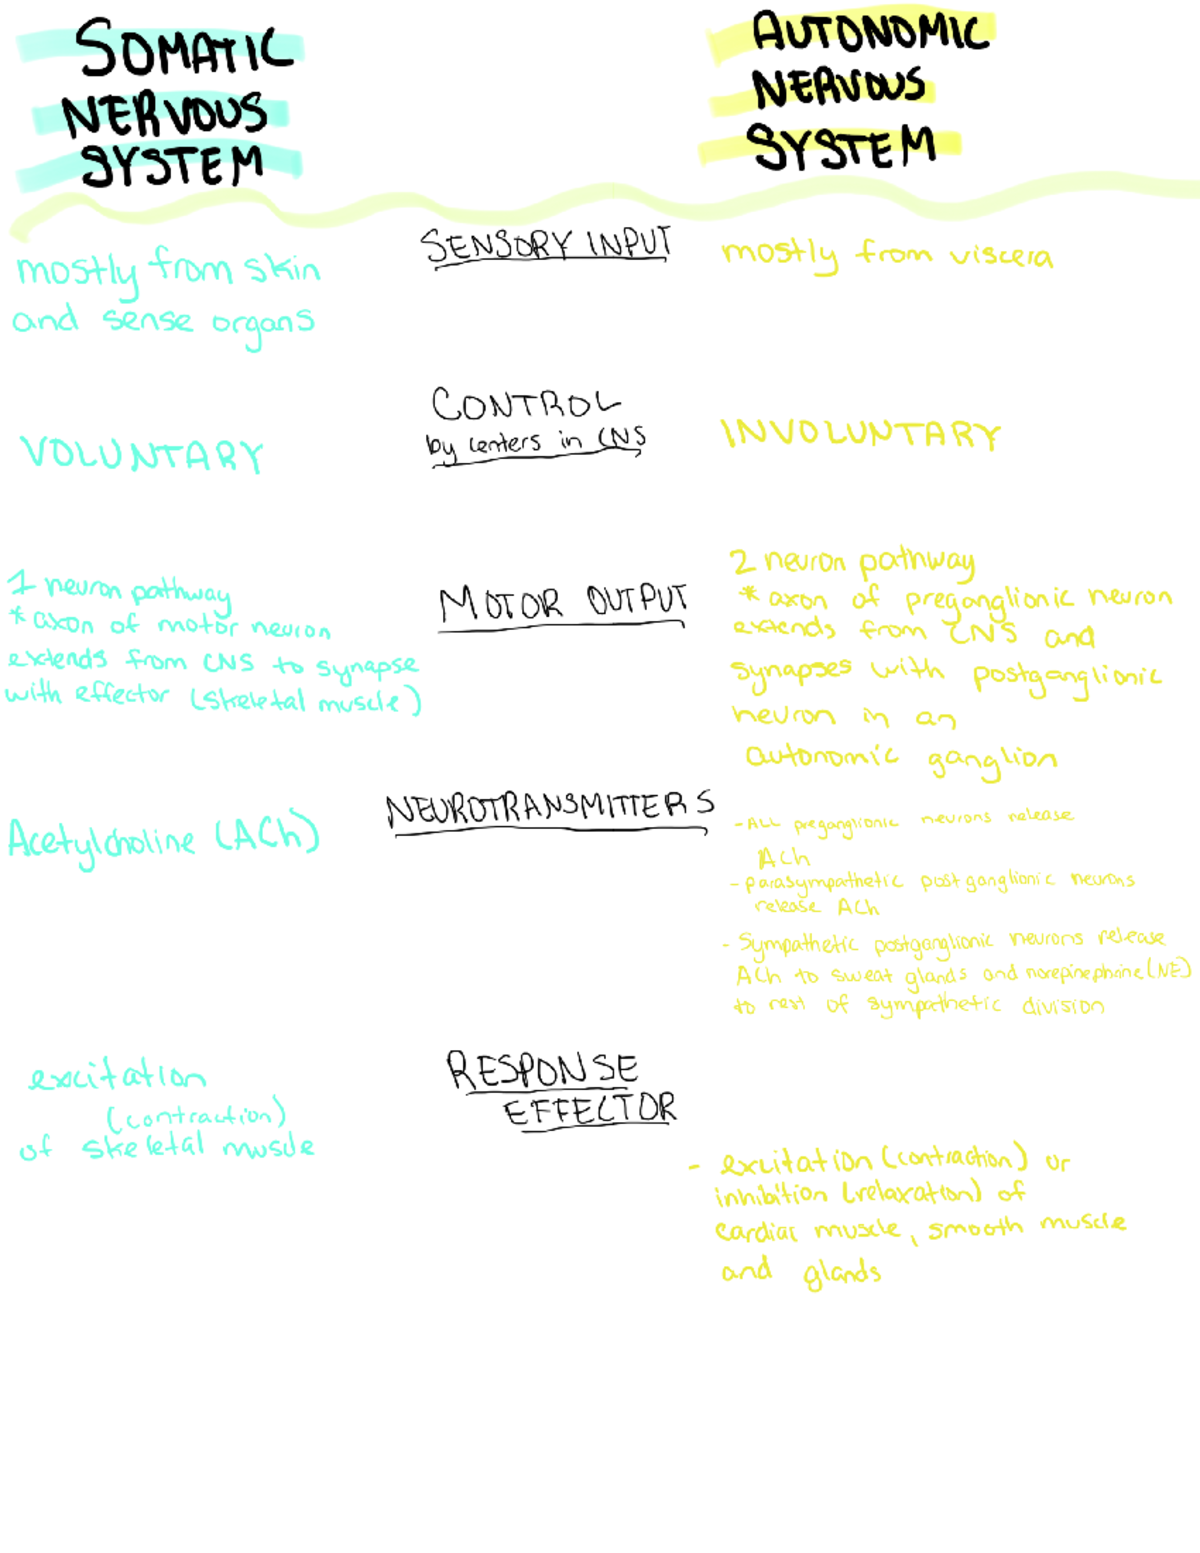 SOMATIC
NERVOUS
SYSTEM
AUTONOMIC
NERVOUS
SYSTEM
SENSORY INPUT
mostly from skin
and sense organs
mostly from viscera
CONTROL
by centers in CNS
VOLUNTARY
INVOLUNTARY
MOTOR OUTPUT
1 neuron pathway
* axon of motor neuron
extends from CNS to synapse
with effector (skeletal muscle)
2 neuron pathway
* axon of preganglionic neuron
extends from CNS and
synapses with postganglionic
neuron in an
autonomic ganglion
NEUROTRANSMITTERS
Acetylcholine (ACh)
- ALL preganglionic neurons release
ACh
- parasympathetic postganglionic neurons
release ACh
- Sympathetic postganglionic neurons release
ACh to sweat glands and norepinephrine (NE)
to rest of sympathetic division
RESPONSE
EFFECTOR
excitation
(contraction)
of skeletal muscle
- excitation (contraction) or
inhibition (relaxation) of
cardiac muscle, smooth muscle
and glands